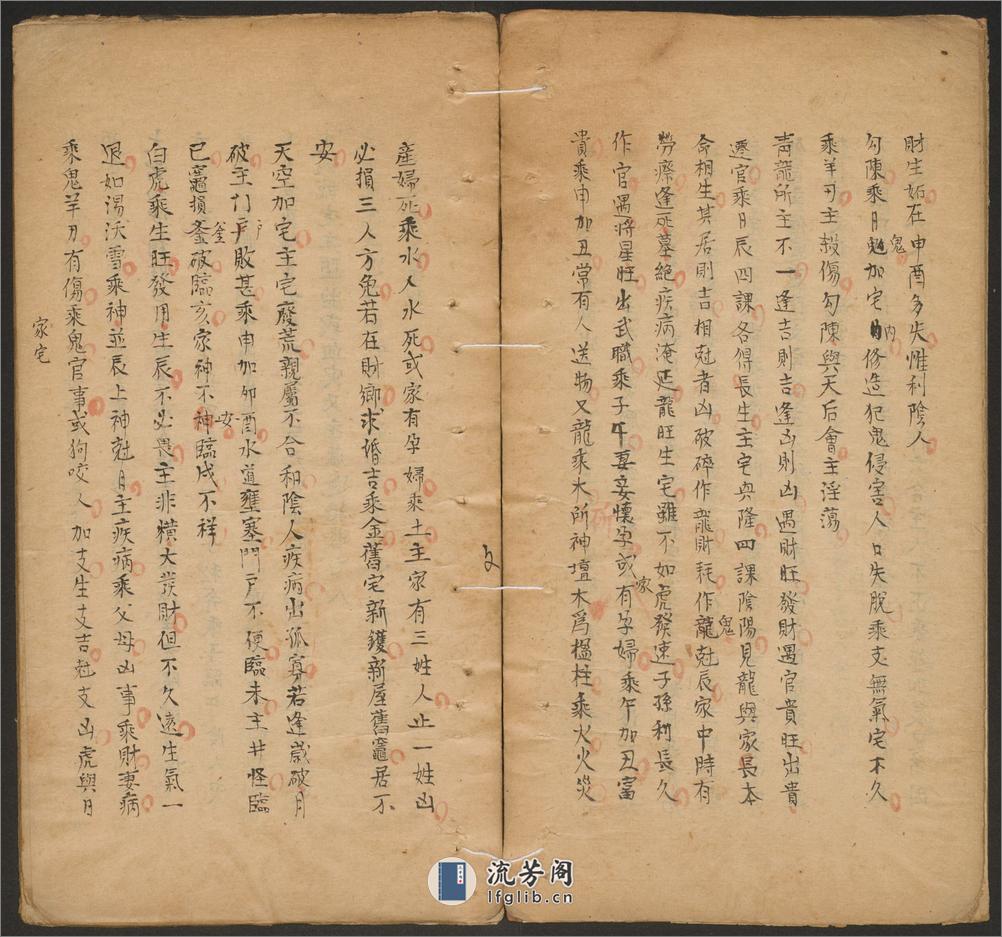 財生妬在申酉多失惟利陰人
勾陳乘日鬼加宅內修造犯鬼侵害人口失脫乘支無氣宅不久
乘羊刃主殺傷勾陳與天后會主淫蕩
青龍所主不一逢吉則吉逢凶則凶遇財旺發財遇官貴旺出貴
遷官乘日辰四課各得長生主宅興隆四課陰陽見龍與家長本
命相生其居則吉相尅者凶破碎作龍財耗作龍鬼尅辰家中時有
勞瘵逢死墓絕疾病淹延龍旺生宅雖不如虎發速子孫利長久
作官遇將星旺出武職乘子午妻妾懷孕或家有孕婦乘午加丑富
貴乘申加丑常有人送物又龍乘木所神壇木為楹柱乘火火災
產婦死乘水人水死或家有孕婦乘土主家有三姓人止一姓凶
必損三人方免若在財鄉求婚吉乘金舊宅新鑊新屋舊竈居不
安
天空加宅主宅廢荒親屬不合和陰人疾病出孤寡若逢歲破月
破主門戶敗甚乘申加卯酉水道壅塞門戶不便臨未主井怪臨
巳竈損釜破臨亥家神不安神臨戌不祥
白虎乘生旺發用生辰不必畏主非橫大發財但不久遠生氣一
退如湯沃雪乘神並辰上神尅日主疾病乘父母凶事乘財妻病
乘鬼羊刃有傷乘鬼官事或狗咬人加支生支吉尅支凶虎與日
家宅
流芳阁
lfglib.cn